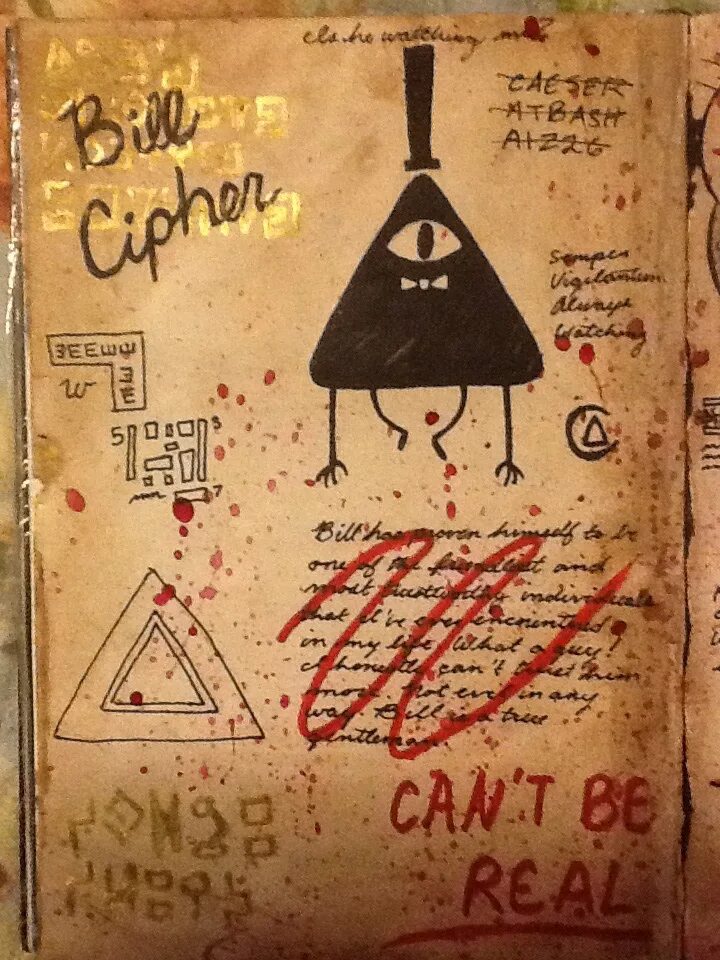 Is he watching me?
Bill
Cipher
CAESER
ATBASH
A1Z26
Semper
Vigilantem.
Always
Watching
W
5
8
7
Bill has proven himself to be
one of the friendliest and
most trustworthy individuals
that I've ever encountered
in my life. What a guy!
I honestly can't trust him
more. Not even in any
way. Bill is a true
gentleman.
CAN'T BE
REAL